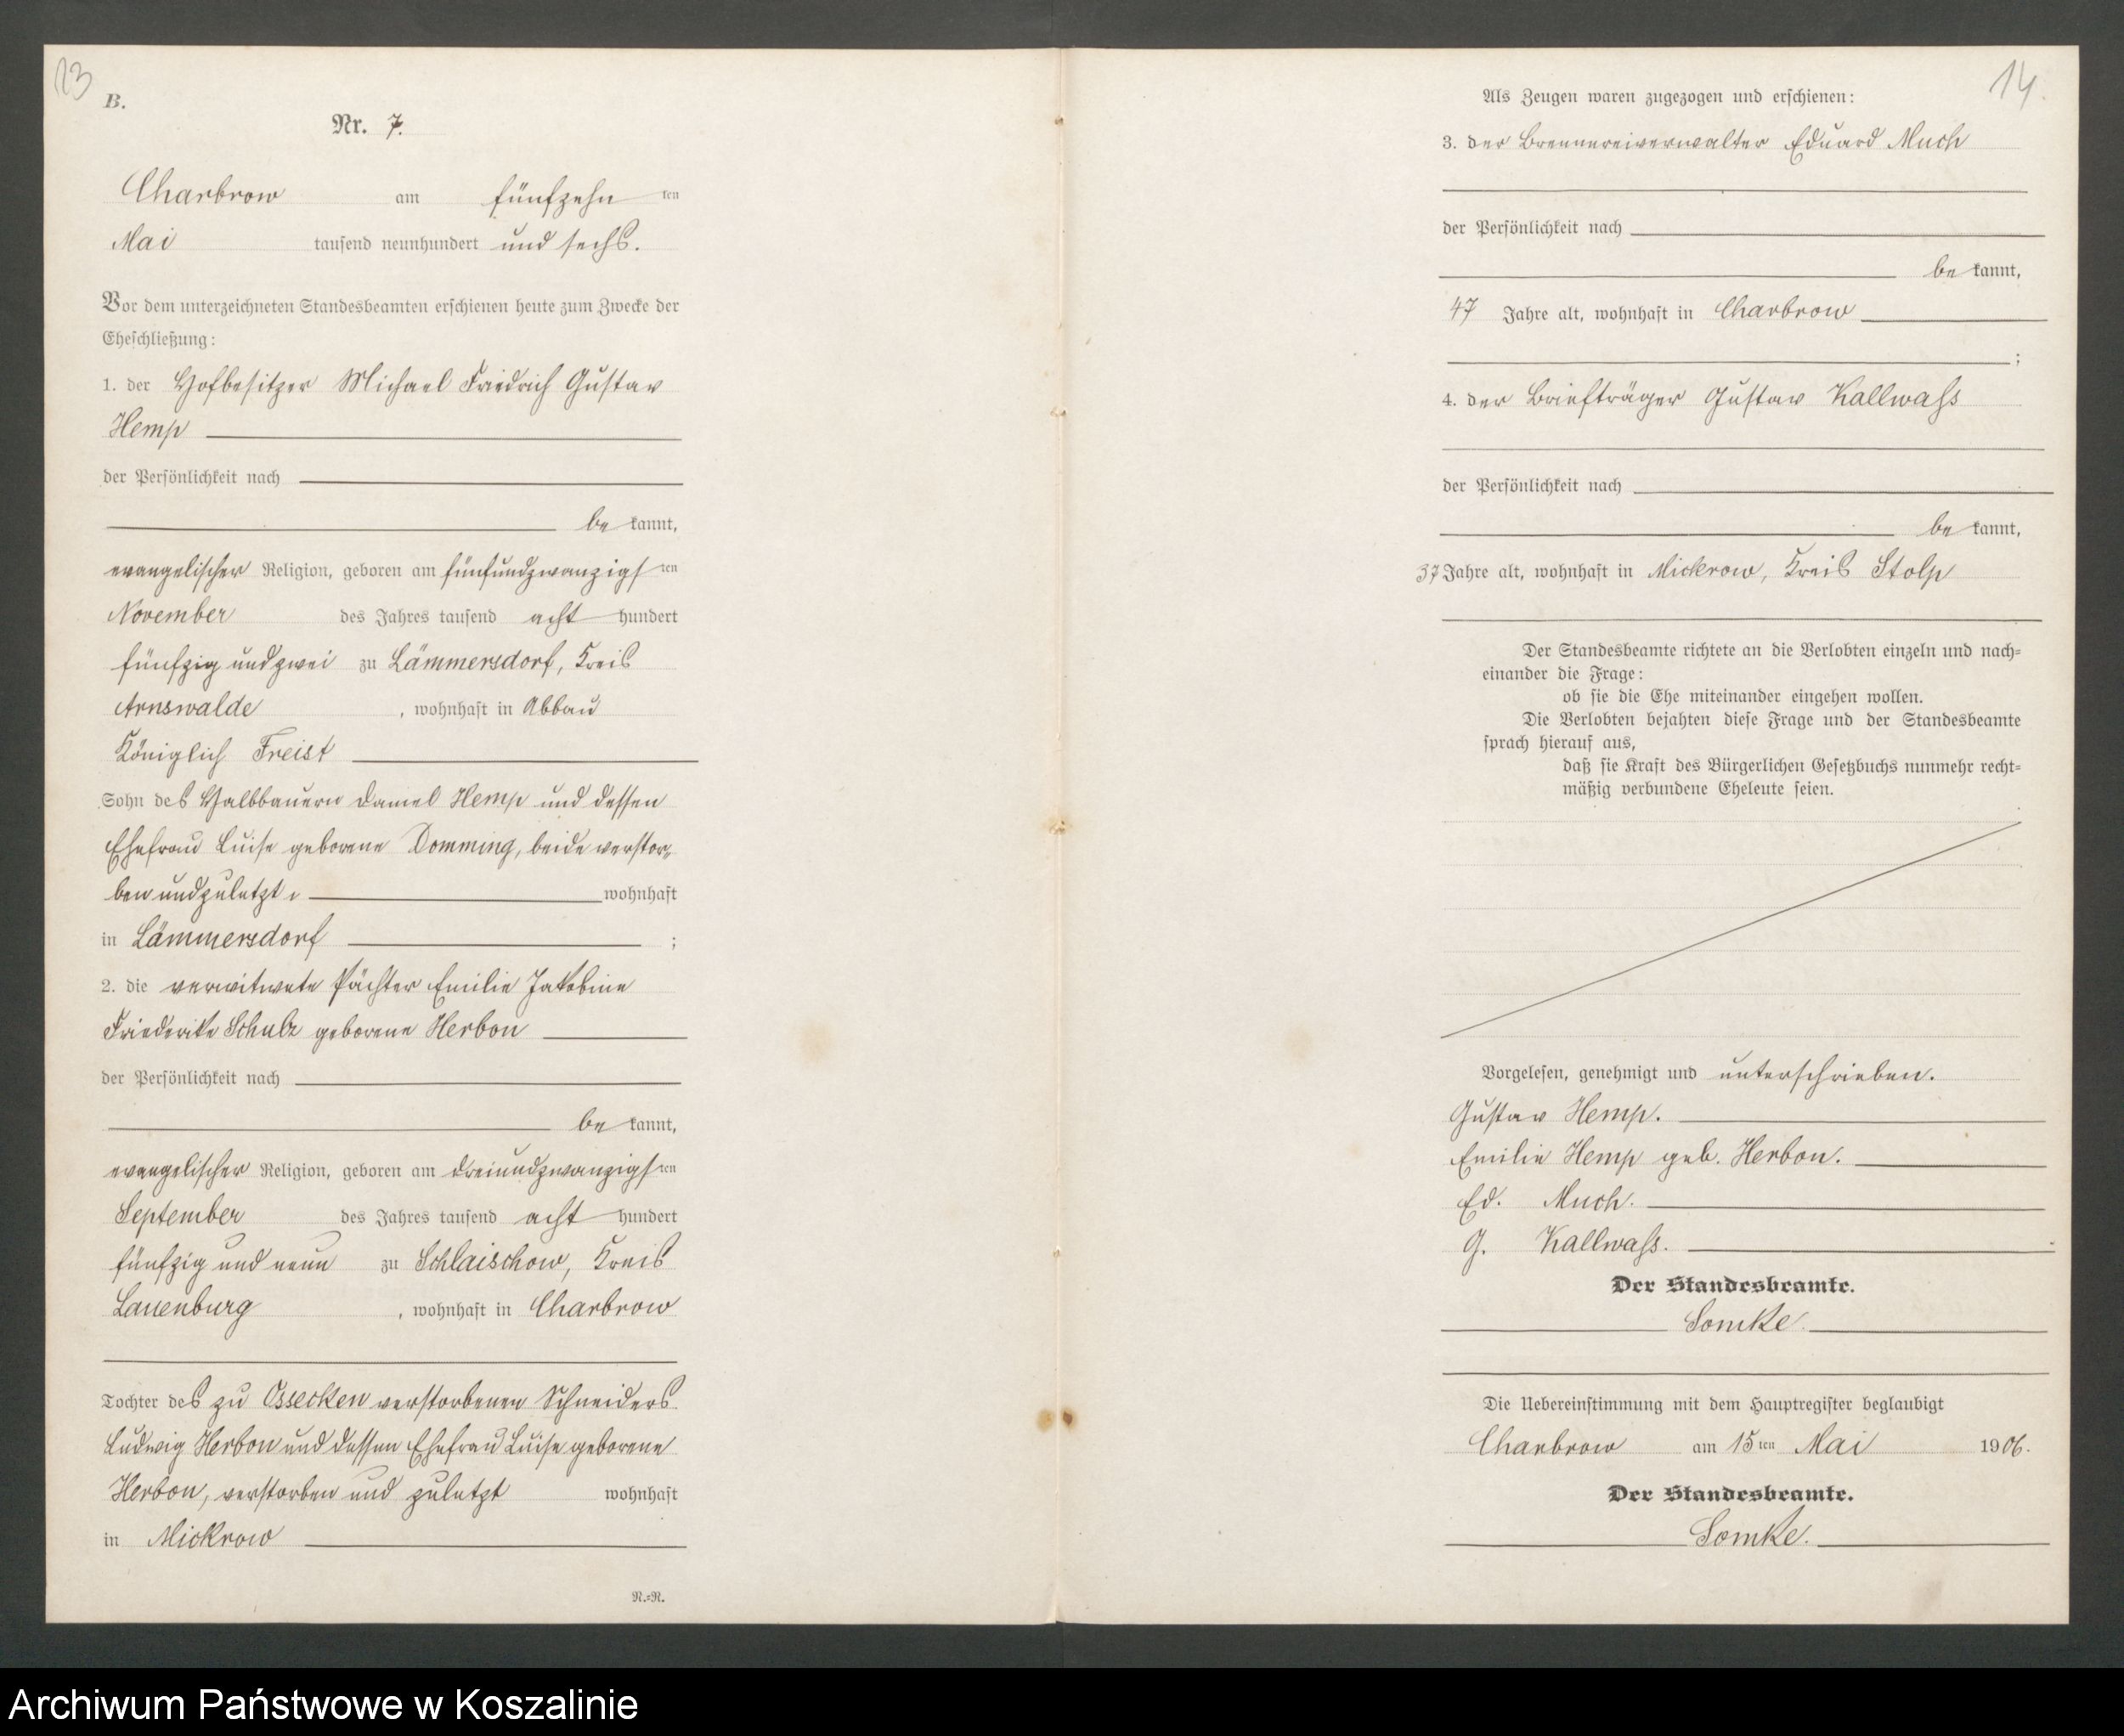 13
B.
Nr. 7.
Charbrow am fünfzehn ten
Mai tausend neunhundert und sechs.
Vor dem unterzeichneten Standesbeamten erschienen heute zum Zwecke der
Eheschließung:
1. der Hofbesitzer Michael Friedrich Gustav
Hemp
der Persönlichkeit nach
be kannt,
evangelischer Religion, geboren am fünfundzwanzigsten
November des Jahres tausend acht hundert
fünfzig und zwei zu Lämmersdorf, Kreis
Arnswalde, wohnhaft in Abbau
Königlich Freist
Sohn des Halbbauern Daniel Hemp und dessen
Ehefrau Luise geborene Domming, beide verstor-
ben und zuletzt wohnhaft
in Lämmersdorf ;
2. die verwitwete Pächter Emilie Jakobine
Friederike Schulz geborene Herbon
der Persönlichkeit nach
be kannt,
evangelischer Religion, geboren am dreiundzwanzigsten
September des Jahres tausend acht hundert
fünfzig und neun zu Schlaischow, Kreis
Lauenburg, wohnhaft in Charbrow
Tochter des zu Ossecken verstorbenen Schneiders
Ludwig Herbon und dessen Ehefrau Luise geborene
Herbon, verstorben und zuletzt wohnhaft
in Mickrow
N.=N.
14.
Als Zeugen waren zugezogen und erschienen:
3. der Brennereiverwalter Eduard Much
der Persönlichkeit nach
be kannt,
47 Jahre alt, wohnhaft in Charbrow
;
4. der Briefträger Gustav Kallwaß
der Persönlichkeit nach
be kannt,
37 Jahre alt, wohnhaft in Mickrow, Kreis Stolp
Der Standesbeamte richtete an die Verlobten einzeln und nach=
einander die Frage:
ob sie die Ehe miteinander eingehen wollen.
Die Verlobten bejahten diese Frage und der Standesbeamte
sprach hierauf aus,
daß sie Kraft des Bürgerlichen Gesetzbuchs nunmehr recht=
mäßig verbundene Eheleute seien.
Vorgelesen, genehmigt und unterschrieben.
Gustav Hemp.
Emilie Hemp geb. Herbon.
Ed. Much.
G. Kallwaß.
Der Standesbeamte.
Somke.
Die Uebereinstimmung mit dem Hauptregister beglaubigt
Charbrow am 15ten Mai 1906.
Der Standesbeamte.
Somke.
Archiwum Państwowe w Koszalinie